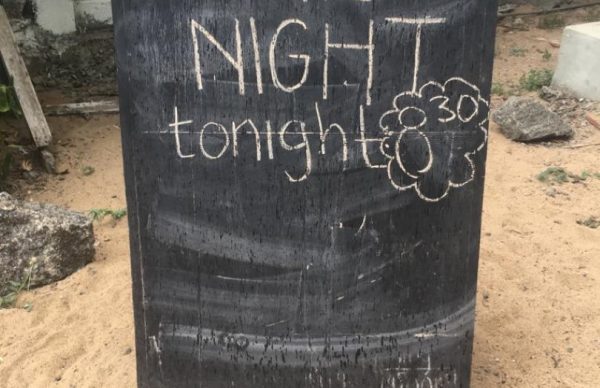 NIGHT
tonight 8 30